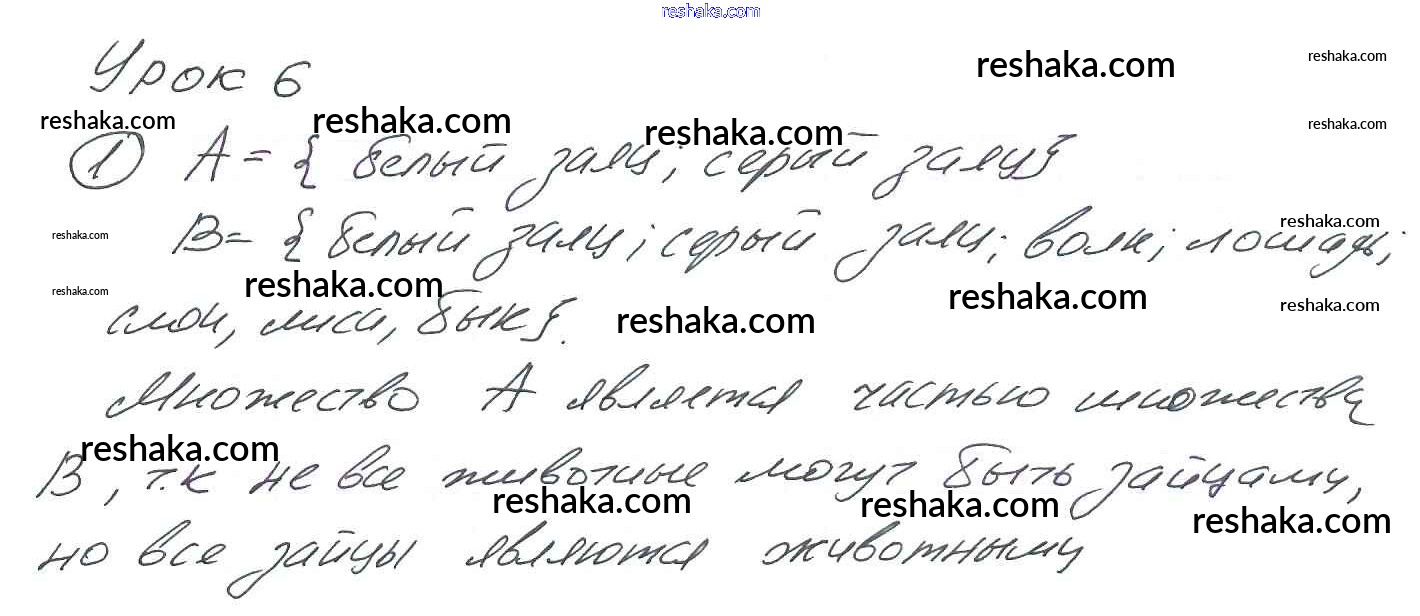 reshaka.com
Урок 6
reshaka.com reshaka.com
reshaka.com reshaka.com reshaka.com reshaka.com
1 A = { белый заяц; серый заяц}
reshaka.com reshaka.com
B = { белый заяц; серый заяц; волк; лошадь;
reshaka.com reshaka.com reshaka.com
слон, лиса, бык}.
reshaka.com reshaka.com
Множество A является частью множества
reshaka.com
B, т.к не все животные могут быть зайцами,
reshaka.com reshaka.com reshaka.com
но все зайцы являются животными